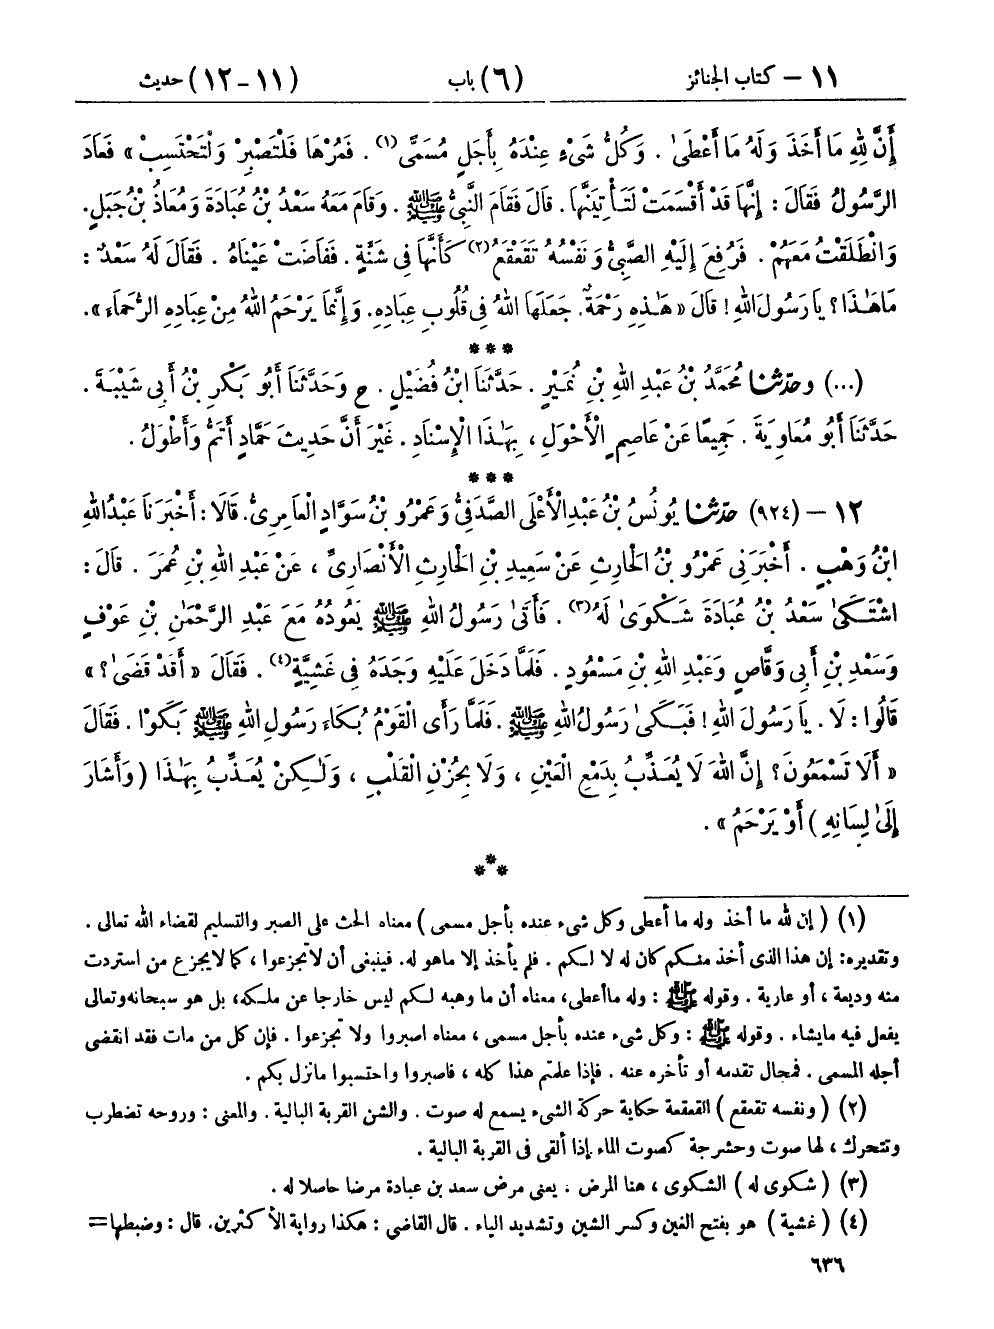 ١١ – كتاب الجنائز (٦) باب (١١-١٢) حديث
إِنَّ لِلّٰهِ مَا أَخَذَ وَلَهُ مَا أَعْطَىٰ . وَكُلُّ شَيْءٍ عِنْدَهُ بِأَجَلٍ مُسَمًّى (١) . فَمُرْهَا فَلْتَصْبِرْ وَلْتَحْتَسِبْ » فَعَادَ
الرَّسُولُ فَقَالَ : إِنَّهَا قَدْ أَقْسَمَتْ لَتَأْتِيَنَّهَا . قَالَ فَقَامَ النَّبِيُّ ﷺ . وَقَامَ مَعَهُ سَعْدُ بْنُ عُبَادَةَ وَمُعَاذُ بْنُ جَبَلٍ.
وَانْطَلَقْتُ مَعَهُمْ . فَرُفِعَ إِلَيْهِ الصَّبِيُّ وَنَفْسُهُ تَقَعْقَعُ (٢) كَأَنَّهَا فِي شَنَّةٍ . فَفَاضَتْ عَيْنَاهُ . فَقَالَ لَهُ سَعْدٌ :
مَا هَـٰذَا ؟ يَا رَسُولَ اللهِ ! قَالَ « هَـٰذِهِ رَحْمَةٌ. جَعَلَهَا اللهُ فِي قُلُوبِ عِبَادِهِ. وَإِنَّمَا يَرْحَمُ اللهُ مِنْ عِبَادِهِ الرُّحَمَاءَ ».
***
(...) وحدّثنا مُحَمَّدُ بْنُ عَبْدِ اللهِ بْنِ نُمَيْرٍ . حَدَّثَنَا ابْنُ فُضَيْلٍ . ح وَحَدَّثَنَا أَبُو بَكْرِ بْنُ أَبِي شَيْبَةَ .
حَدَّثَنَا أَبُو مُعَاوِيَةَ . جَمِيعًا عَنْ عَاصِمٍ الْأَحْوَلِ ، بِهَـٰذَا الْإِسْنَادِ . غَيْرَ أَنَّ حَدِيثَ حَمَّادٍ أَتَمُّ وَأَطْوَلُ .
***
١٢ – (٩٢٤) حدّثنا يُونُسُ بْنُ عَبْدِ الْأَعْلَى الصَّدَفِيُّ وَعَمْرُو بْنُ سَوَّادٍ الْعَامِرِيُّ. قَالَا : أَخْبَرَنَا عَبْدُ اللهِ
ابْنُ وَهْبٍ . أَخْبَرَنِي عَمْرُو بْنُ الْحَارِثِ عَنْ سَعِيدِ بْنِ الْحَارِثِ الْأَنْصَارِيِّ ، عَنْ عَبْدِ اللهِ بْنِ عُمَرَ . قَالَ :
اشْتَكَىٰ سَعْدُ بْنُ عُبَادَةَ شَكْوَىٰ لَهُ (٣) . فَأَتَىٰ رَسُولُ اللهِ ﷺ يَعُودُهُ مَعَ عَبْدِ الرَّحْمَـٰنِ بْنِ عَوْفٍ
وَسَعْدِ بْنِ أَبِي وَقَّاصٍ وَعَبْدِ اللهِ بْنِ مَسْعُودٍ . فَلَمَّا دَخَلَ عَلَيْهِ وَجَدَهُ فِي غَشِيَّةٍ (٤) . فَقَالَ « أَقَدْ قَضَىٰ ؟ »
قَالُوا : لَا . يَا رَسُولَ اللهِ ! فَبَكَىٰ رَسُولُ اللهِ ﷺ . فَلَمَّا رَأَى الْقَوْمُ بُكَاءَ رَسُولِ اللهِ ﷺ بَكَوْا . فَقَالَ
« أَلَا تَسْمَعُونَ ؟ إِنَّ اللهَ لَا يُعَذِّبُ بِدَمْعِ الْعَيْنِ ، وَلَا بِحُزْنِ الْقَلْبِ ، وَلَـٰكِنْ يُعَذِّبُ بِهَـٰذَا ( وَأَشَارَ
إِلَىٰ لِسَانِهِ ) أَوْ يَرْحَمُ » .
***
(١) ( إن لله ما أخذ وله ما أعطى وكل شيء عنده بأجل مسمى ) معناه الحث على الصبر والتسليم لقضاء الله تعالى .
وتقديره: إن هذا الذى أخذ منكم كان له لا لكم . فلم يأخذ إلا ماهو له. فينبغى أن لاتجزعوا ، كما لايجزع من استردت
منه وديعة ، أو عارية . وقوله ﷺ : وله ماأعطى، معناه أن ما وهبه لكم ليس خارجا عن ملكه، بل هو سبحانه وتعالى
يفعل فيه مايشاء . وقوله ﷺ : وكل شىء عنده بأجل مسمى ، معناه اصبروا ولا تجزعوا . فإن كل من مات فقد انقضى
أجله المسمى . فمحال تقدمه أو تأخره عنه . فإذا علمتم هذا كله ، فاصبروا واحتسبوا مانزل بكم .
(٢) ( ونفسه تقعقع ) القعقعة حكاية حركة الشىء يسمع له صوت . والشن القربة البالية . والمعنى : وروحه تضطرب
وتتحرك ، لها صوت وحشرجة كصوت الماء إذا ألقى فى القربة البالية .
(٣) ( شكوى له ) الشكوى ، هنا المرض . يعنى مرض سعد بن عبادة مرضا حاصلا له .
(٤) ( غشية ) هو بفتح الغين وكسر الشين وتشديد الياء . قال القاضى : هكذا رواية الأكثرين. قال : وضبطها=
٦٣٦